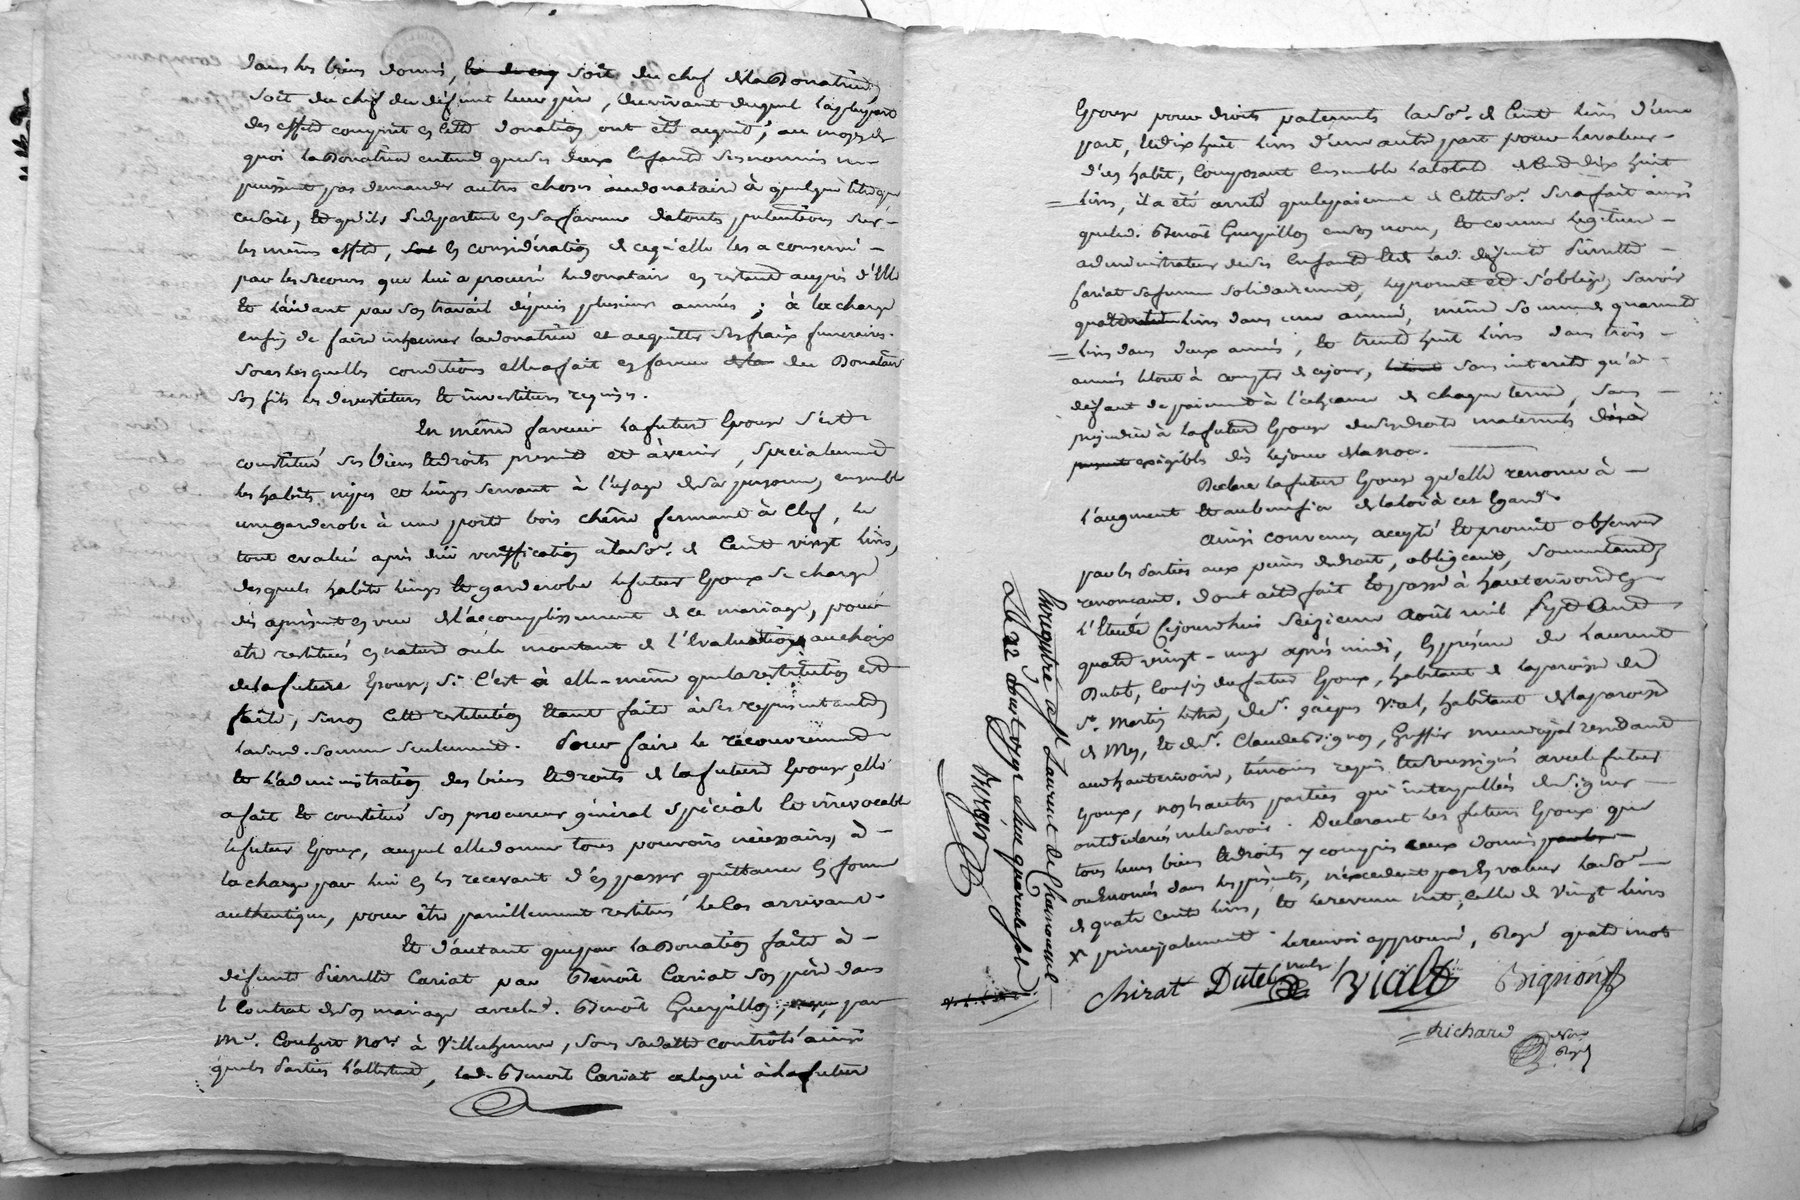 dans les biens donnés, soit du chef de la Donatrice,
soit du chef du défunt leur père, du vivant duquel la plupart
des effets compris en cette donation ont été acquis, au moyen de
quoi la Donatrice entend que ses deux Enfants nommés ne
puissent pas demander autres choses à au donataire à quelque titre que
ce soit, et qu'ils se départent en sa faveur de toutes prétentions sur
les mêmes effets, en considération de ce qu'elle les a conservé
par les secours que lui a procuré le donataire en restant auprès d'Elle
et l'aidant par son travail dépuis plusieurs années ; à la charge
enfin de faire inhumer la donatrice et acquitter ses fraix funeraires.
Sous lesquelles conditions elle a fait en faveur du Donataire
son fils les devestitures et investitures requises.
En même faveur la future Epouse s'est
constitué ses biens et droits presents et à venir, specialement
les habits nipes et linges servant à l'usage de sa personne, ensemble
une garderobe à une porte bois chêne fermant à clef, le
tout evalué après due vériffication à la so.e de Cent vingt livres,
desquels habits linges et garderobe le futur Epoux se charge
dès aprésent en vue de l'accomplissement de ce mariage, pour
etre restitués en nature ou le montant de l'évaluation au choix
de la future Epouse, si c'est à elle-même que la restitution est
faite, sinon cette restitution étant faite à ses représentants
lad. somme seulement. Pour faire le récouvrement
et l'administration des biens et droits de la future Epouse, elle
a fait et constitué son procureur général spécial et irrévocable
le futur Epoux, auquel elle donne tous pouvoirs nécessaires, à
la charge par lui en les recevant d'en passer quittance en forme
authentique, pour être pareillement restitués le cas arrivant.
Et d'autant que par la Donation faite à
défunte Pierrette Cariat par Benoit Cariat son père dans
le Contrat de son mariage avec led. Benoit Guerpillon, reçu par
M.e Not.re à Villechenève, sous sa datte controlé ainsi
que les Parties l'attestent, led. Benoit Cariat a légué à la future
Epouse pour droits paternels la so.e de Cent livres d'une
part, et dix huit livres d'une autre part pour la valeur
d'un habit, composant ensemble la totale de Cent dix huit
livres, il a été arrêté que le paiement de cette so.e sera fait ainsi
que led. Benoit Guerpillon en son nom, et comme légitime
administrateur de ses Enfants et de lad. défunte Pierrette
Cariat sa femme solidairement, le promet et s'oblige, savoir
quarante livres dans une année, même somme de quarante
livres dans deux années, et trente huit livres dans trois
années le tout à compter de ce jour, sans interets qu'à
défaut de paiement à l'échéance de chaque terme, sans
préjudice à la future Epouse de ses droits maternels
exigibles dès le jour de la noce.
Declare la future Epouse qu'elle renonce à
l'augment et au benefice de la loi à cet Egard.
Ainsi convenu accepté et promis observer
par les Parties aux peines de droit, obligeant, soumettant,
renonçant. Dont acte fait et passé à Hauterivoire En
l'Etude Cejourdhui Seizieme Août mil sept Cent
quatre vingt-onze après midi, En présence de Laurent
Dutel, Cousin du futur Epoux, habitant de la paroisse de
St. Martin Lestra, de S.r Jacques Vial, habitant de la paroisse
de Mey, et de S.r Claude Bignon, Greffier municipal résidant
aud. hauterivoire, témoins requis et soussignés avec le futur
Epoux, non les autres parties qui interpellées de signer
ont déclaré ne le savoir. Declarant les futurs Epoux que
tous leurs biens et droits y compris ceux donnés
ou Enoncés dans les présents, n'excedent pas En valeur la so.e
de quatre Cents livres, et le revenu net, celle de Vingt livres
x principalement. Le renvoi approuvé, Rayé quatre mots
Chirat Dutel Vialt Bignon
Richard Not.
Roy.
Enregistré à St Laurent de Chamousset
Le 22 aoust 1791 Reçu quarente sols